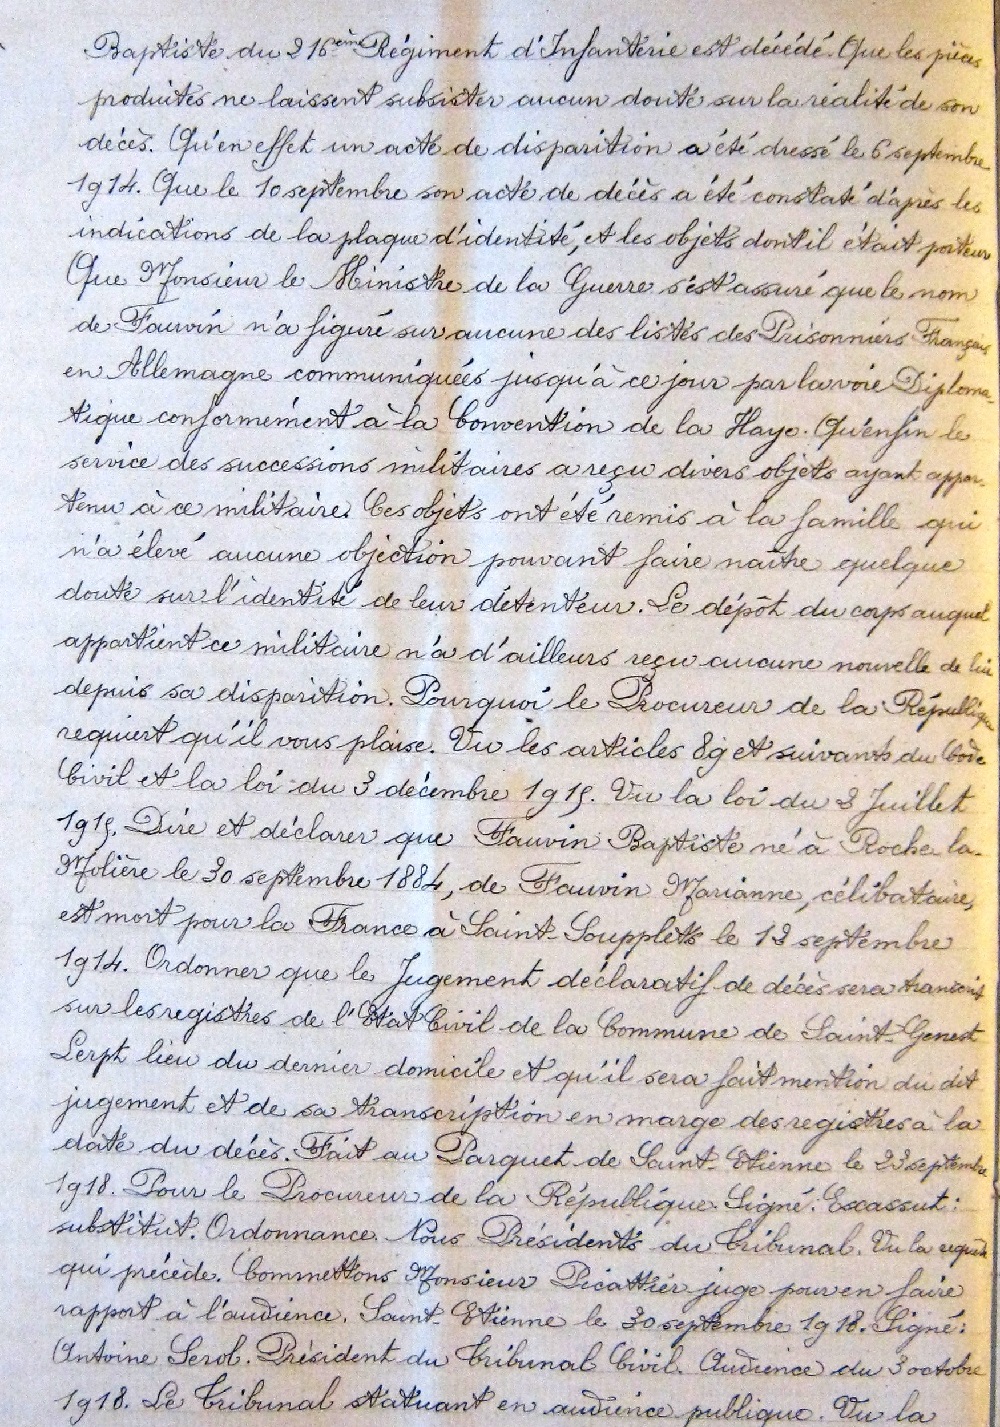 Baptiste du 216ème Régiment d'Infanterie est décédé. Que les pièces
produites ne laissent subsister aucun doute sur la réalité de son
décès. Qu'en effet un acte de disparition a été dressé le 6 septembre
1914. Que le 10 septembre son acte de décès a été constaté d'après les
indications de la plaque d'identité, et les objets dont il était porteur
Que Monsieur le Ministre de la Guerre s'est assuré que le nom
de Fauvin n'a figuré sur aucune des listes des Prisonniers Français
en Allemagne communiquées jusqu'à ce jour par la voie Diploma-
tique conformément à la Convention de la Haye. Qu'enfin le
service des successions militaires a reçu divers objets ayant appar-
tenu à ce militaire. Ces objets ont été remis à la famille qui
n'a élevé aucune objection pouvant faire naître quelque
doute sur l'identité de leur détenteur. Le dépôt du corps auquel
appartient ce militaire n'a d'ailleurs reçu aucune nouvelle de lui
depuis sa disparition. Pourquoi le Procureur de la République
requiert qu'il vous plaise. Vu les articles 89 et suivants du Code
Civil et la loi du 3 décembre 1915. Vu la loi du 2 Juillet
1915. Dire et déclarer que Fauvin Baptiste né à Roche la-
Molière le 30 septembre 1884, de Fauvin Marianne, célibataire,
est mort pour la France à Saint-Soupplets le 12 septembre
1914. Ordonner que le Jugement déclaratif de décès sera transcrit
sur les registres de l'Etat Civil de la Commune de Saint-Genest
Lerpt lieu du dernier domicile et qu'il sera fait mention du dit
jugement et de sa transcription en marge des registres à la
date du décès. Fait au Parquet de Saint-Etienne le 23 septembre
1918. Pour le Procureur de la République. Signé: Excassut:
substitut. Ordonnance. Nous Présidents du Tribunal. Vu la requête
qui précède. Commettons Monsieur Picattier juge pour en faire
rapport à l'audience. Saint-Etienne le 30 septembre 1918. Signé:
Antoine Serol. Président du Tribunal Civil. Audience du 3 octobre
1918. Le Tribunal statuant en audience publique. Vu la